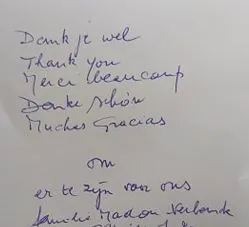 Dank je wel
Thank you
Merci beaucoup
Danke schön
Muchas Gracias
om
er te zijn voor ons
familie Madou Verbonck